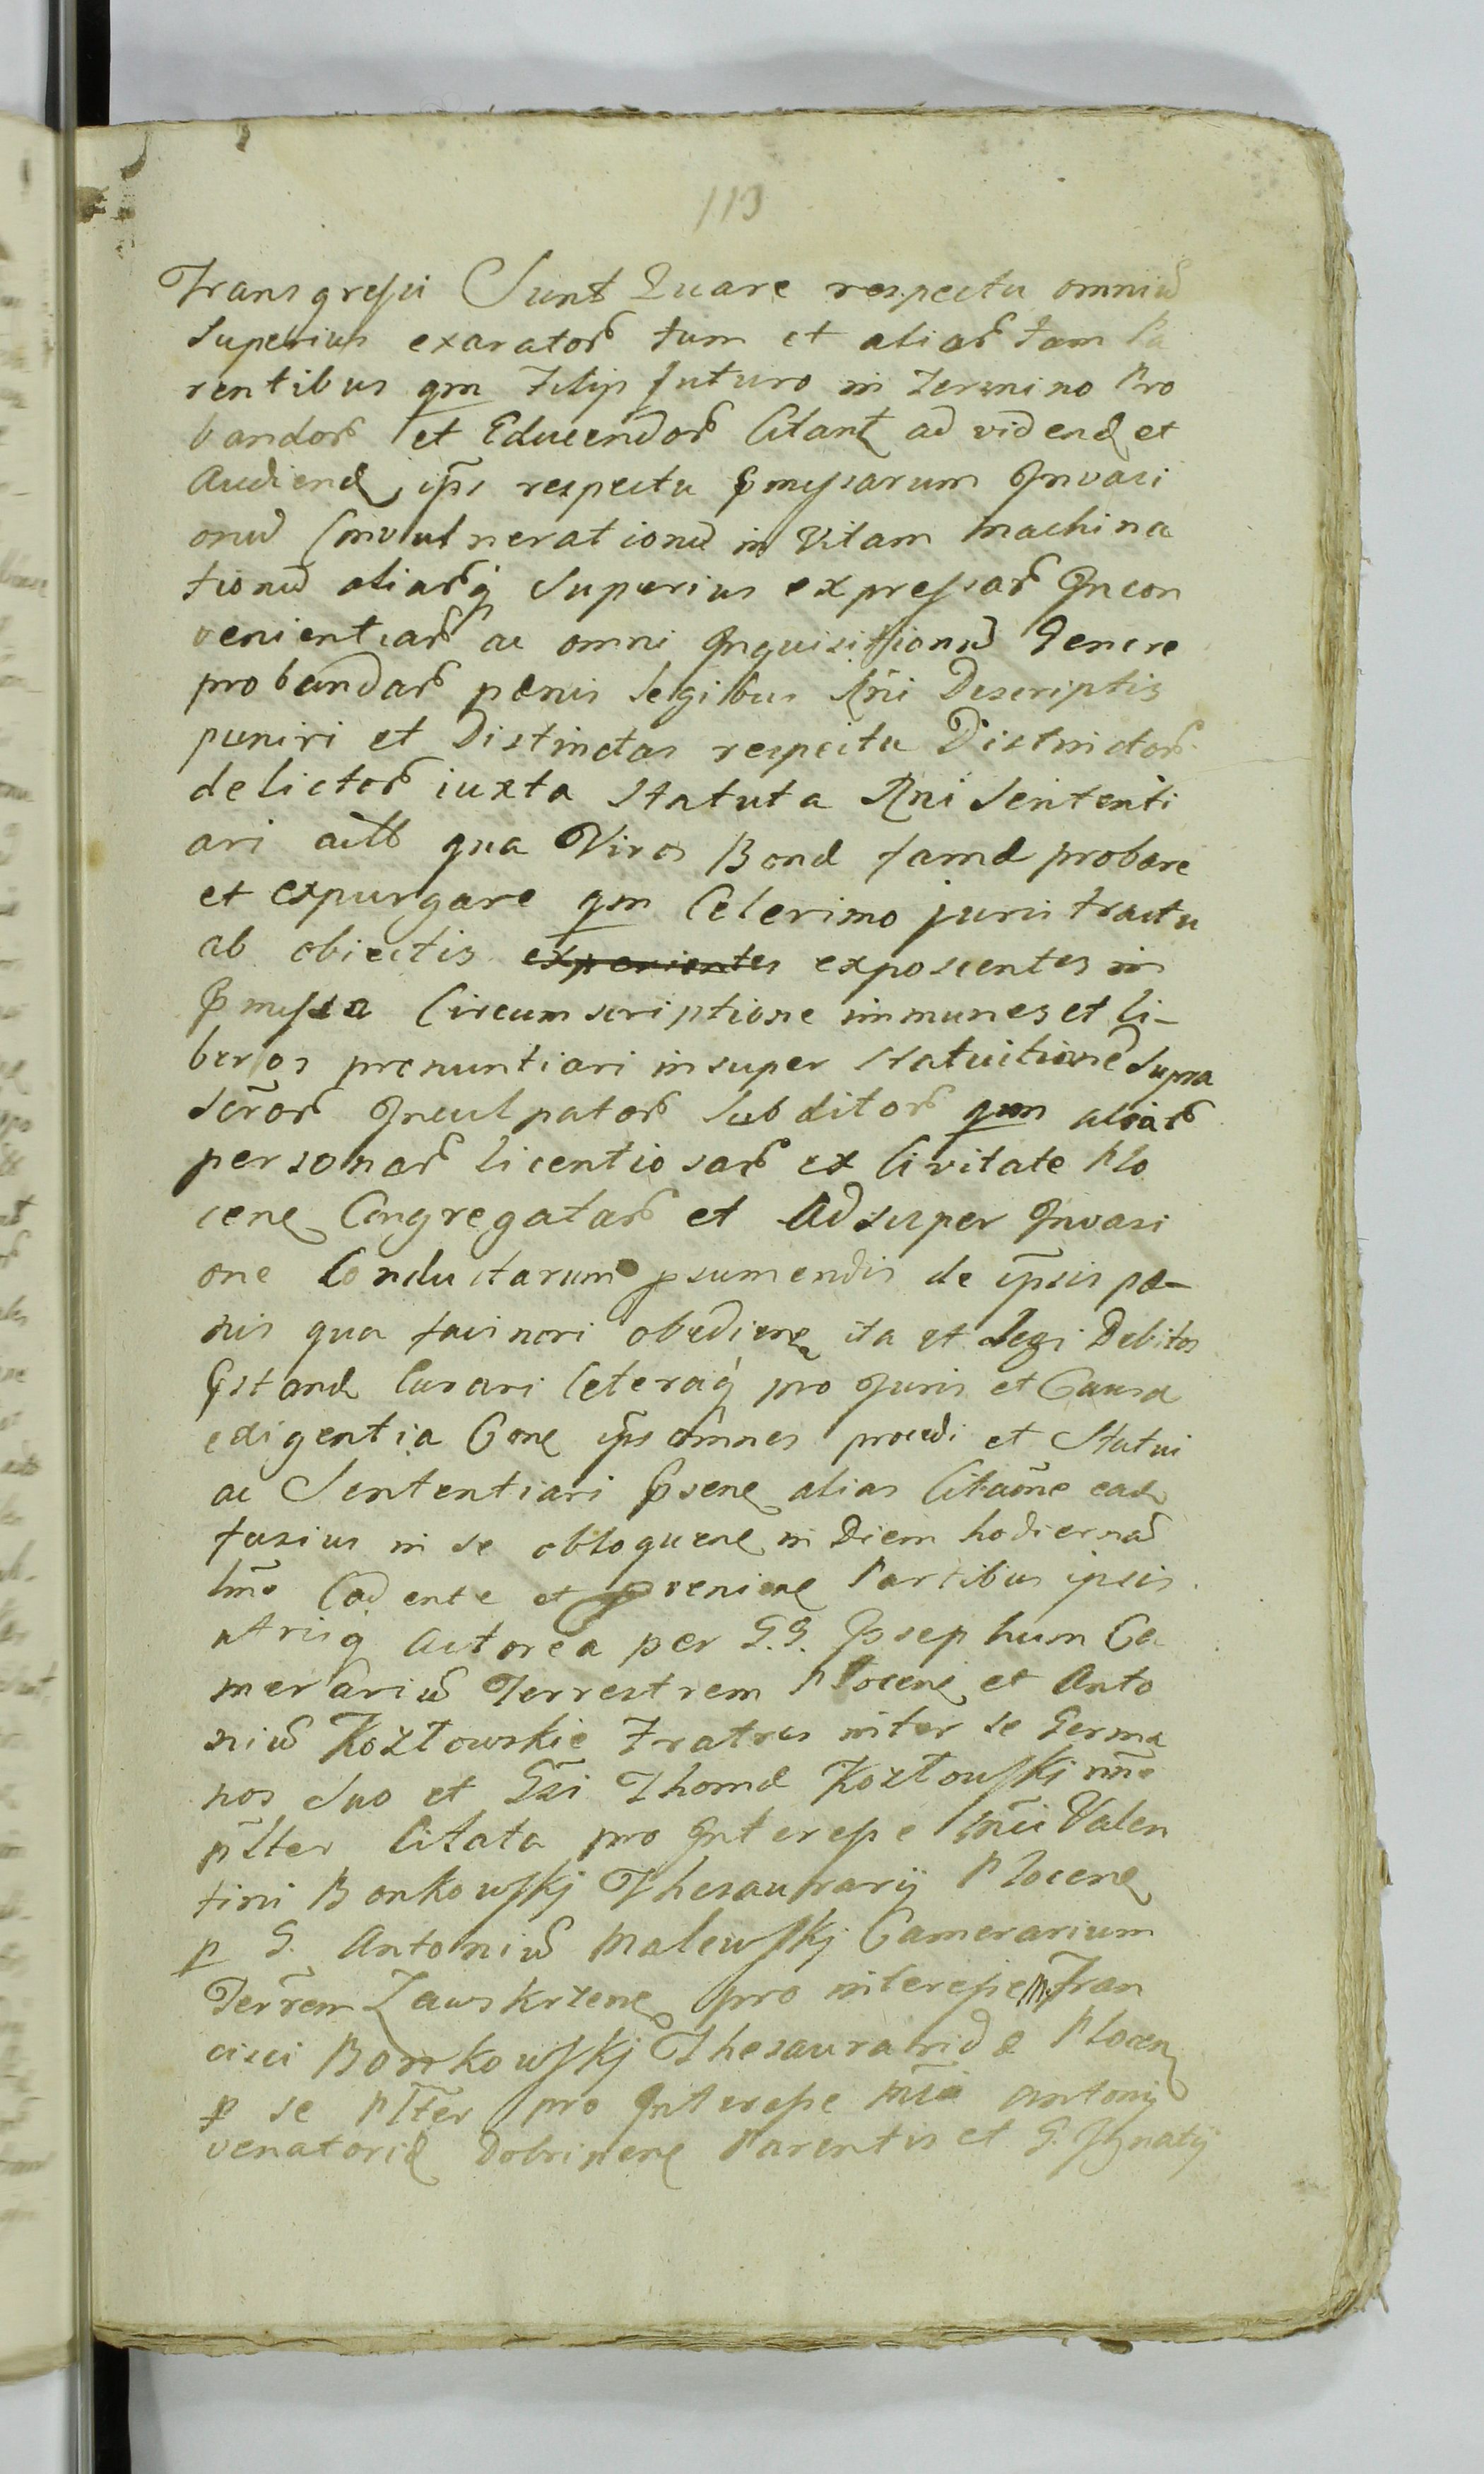 113
Transgressi Sunt Quare respectu omniũ
Superius exarator̃ tum et aliar̃ tam Pa
rentibus qm Filijs futuro in Termino Pro
bandor̃ et Educendor̃ Citant ad vidend et
Audiend, ips̄ respectu pmissarum Invasi
onũ Convulnerationũ in Vitam machina
tionũ aliarq̃ Superius expressar̃ Incon
venientiar̃ ac omni Inquisitionũ Genere
probandar̃ pænis legibus Rñi Descriptis
puniri et Distinctas respectu Distinctor̃
delictor̃ iuxta Statuta Rñi Sententi
ari qua Viros Bonæ famæ probare
et expurgare qm Celerimo juris tractu
ab obiectis experientes exposcentes in
pmissa Circumscriptione immunes et li-
beros pronuntiari insuper Statuitione Supra
Scr̃or̃ Inculpator̃ Subditor̃ qm aliar̃
personar̃ licentiosar̃ ex Civitate Plo
cen Congregatar̃ et Ad super Invasi
one Conductarum psumendis de ip̄sis pæ-
nis qua facinori obedien ita et Legi Debitos
pstand Curari Ceteraq̃ pro Juris et Causæ
exigentia Cone ips omnes procedi et Statui
ac Sententiari psen alias Citaõne ead
fusius in se obloquen in Diem hodiernã
lm̃e Cadente et pvenien Partibus ipsis
utrisq Actorea per G.G. Josephum Ca
merariũ Terrestrem Plocen et Anto
niũ Kozłowskie Fratres inter se Germa
nos Suo et Gs̃i Thomæ Kozłowskj nm̃e
p̃lter Citata pro Interesse Valen
tini Bonkowskj Thesaurarij Plocen
p G. Antoniũ Malewskj Camerarium
Ter̃rem Zawskrzen pro interesse M. Fran
cisci Bonkowskj Thesauraridæ Plocen
p se plter pro Interesse Antonij
venatoridæ Dobrinen Parentis et G. Ignatij